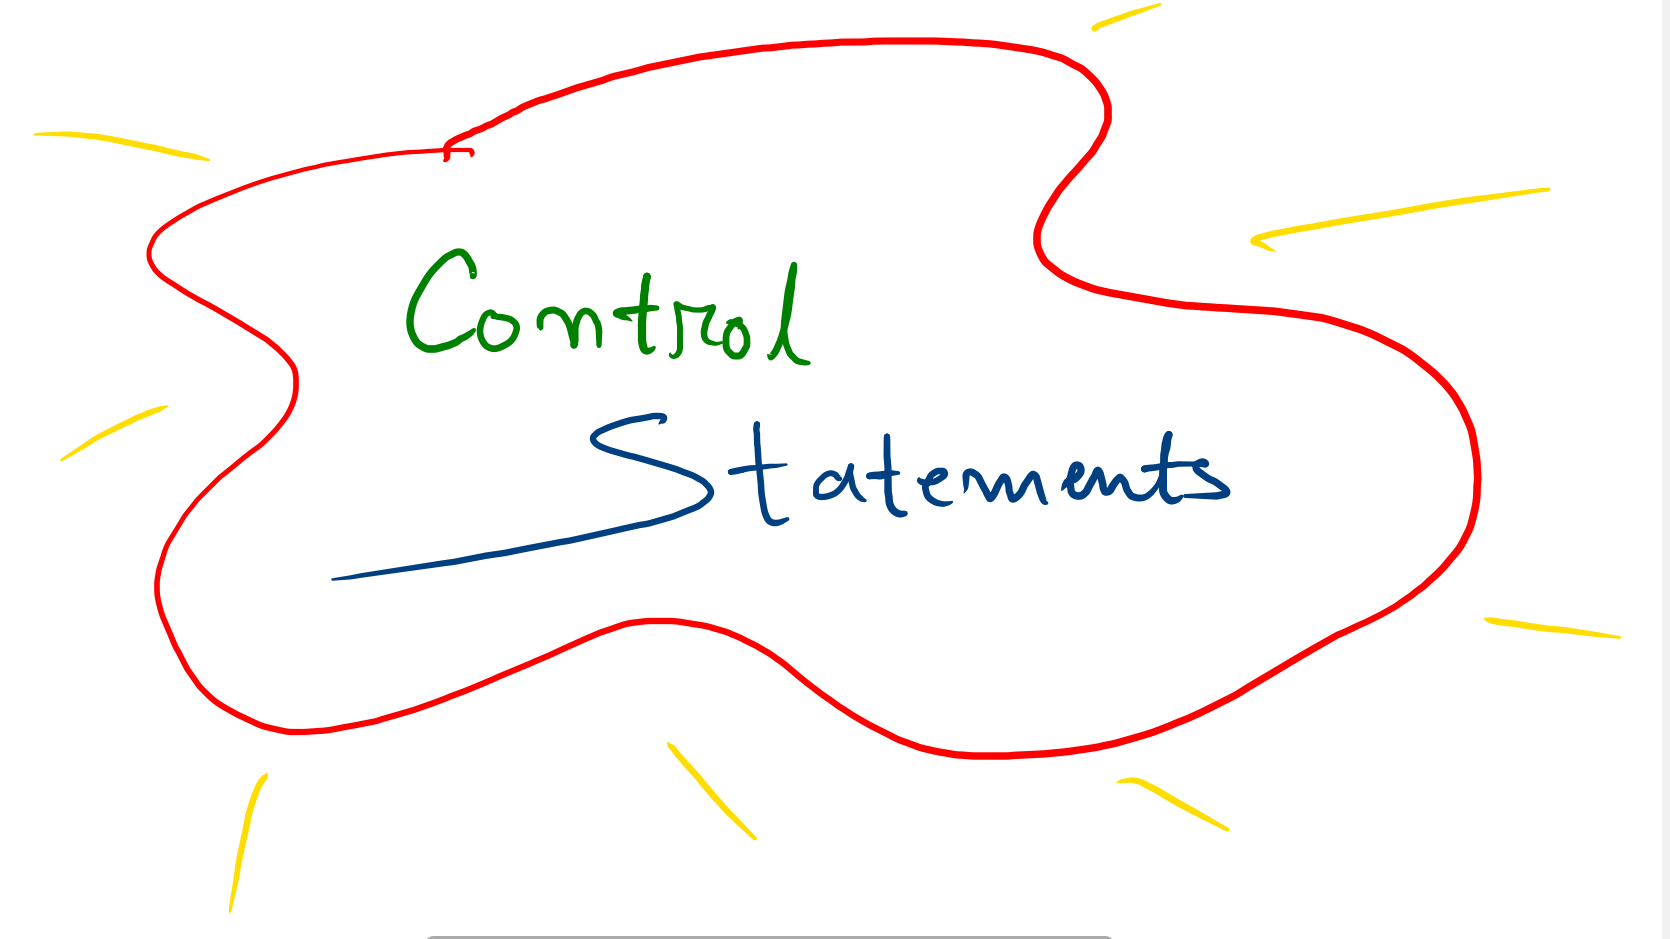 Control
Statements